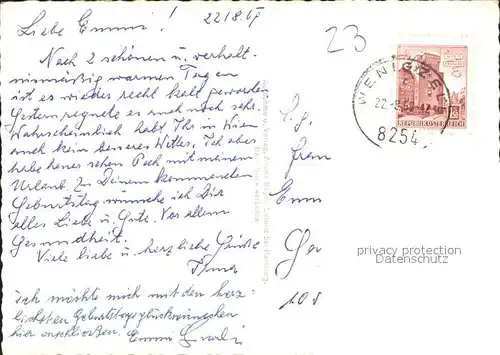 22/8.69
Liebe Emmi!
23
Nach 2 schönen u. verhält-
nismäßig warmen Tagen
ist es wieder recht kalt geworden
Gestern regnete es auch noch sehr.
Wahrscheinlich habt Ihr in Wien
auch kein besseres Wetter. Ich aber
habe heuer schon Pech mit meinem
Urlaub. Zu Deinem kommenden
Geburtstag wünsche ich Dir
alles Liebe u. Gute. Vor allem
Gesundheit.
Viele liebe u. herzliche Grüße
Ich möchte mich mit den herz-
lichsten Geburtstagsglückwünschen
hier anschließen. Emmi
WENIGZELL
8254
REPUBLIK ÖSTERREICH
Frau
privacy protection
Datenschutz